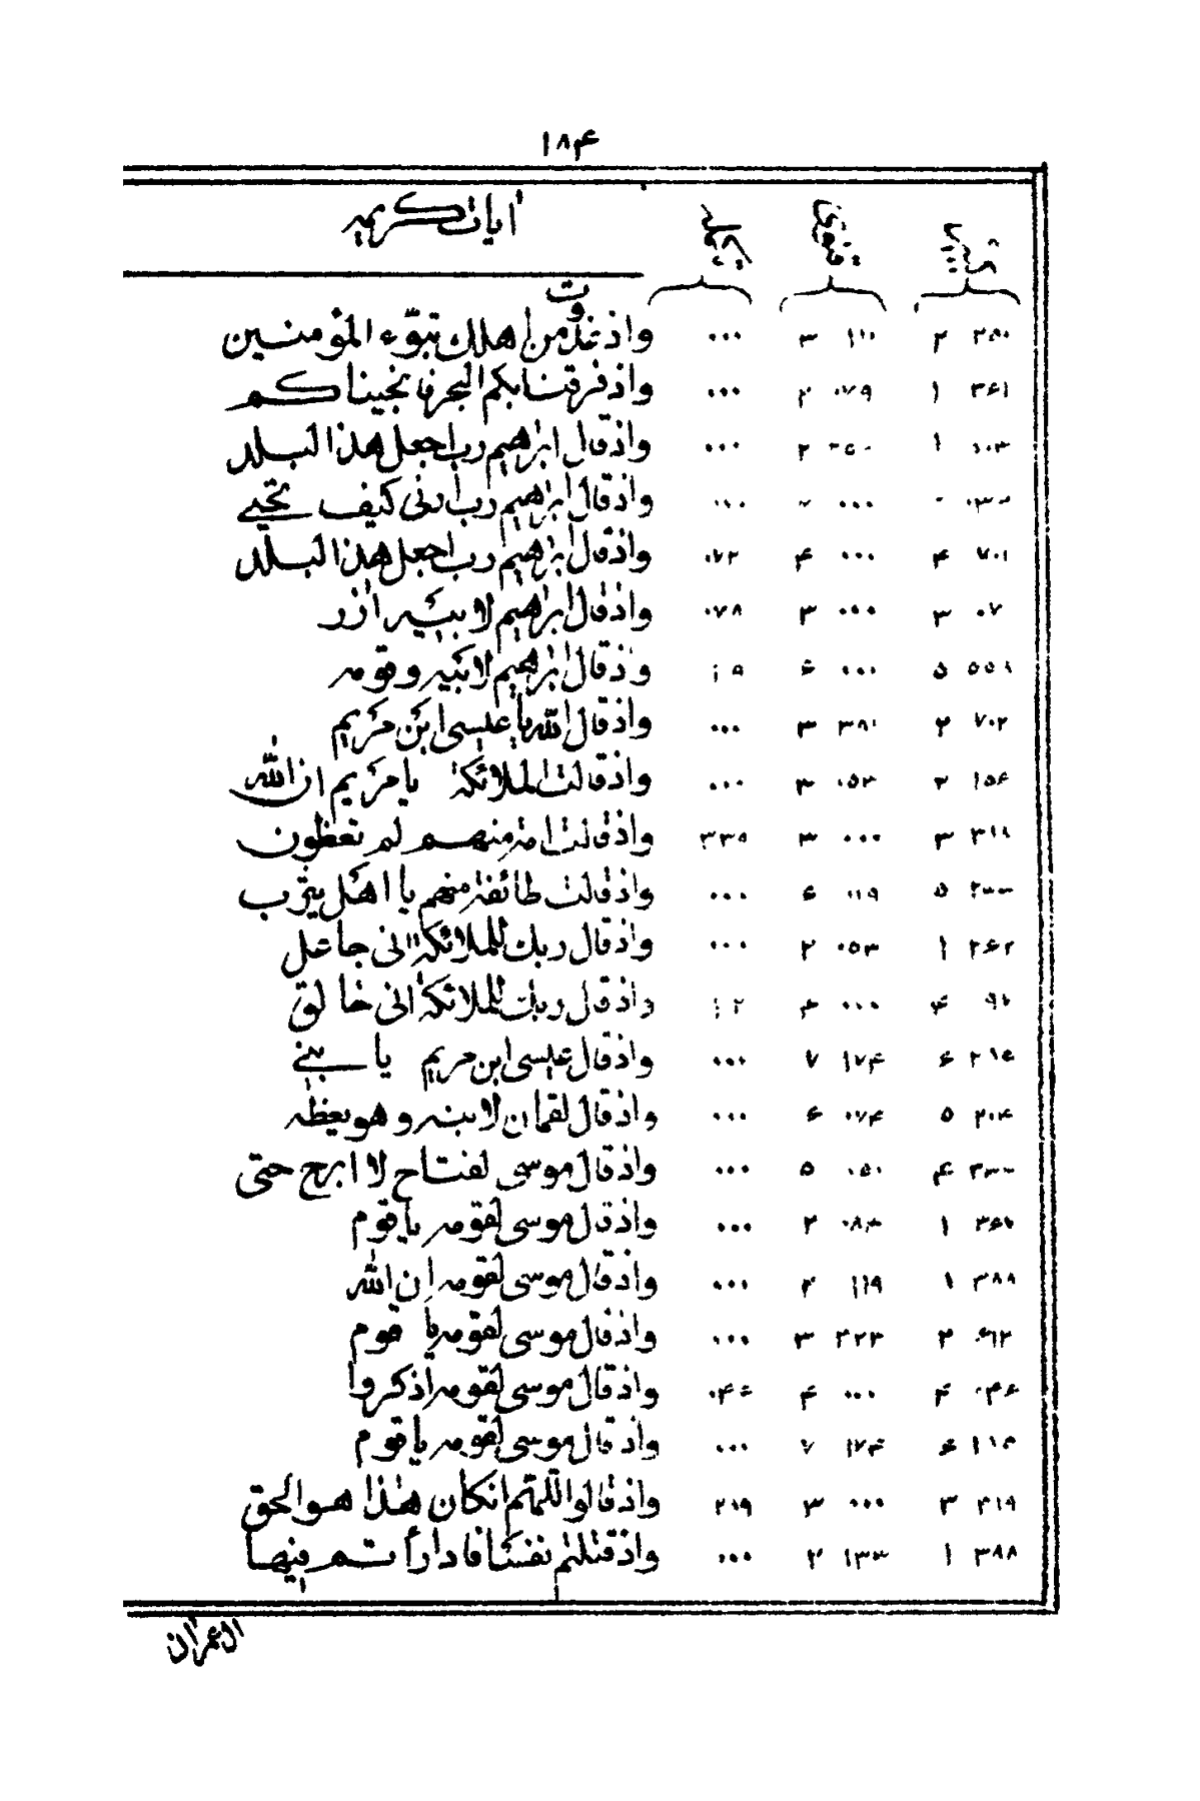 ۱۸۴
آیات کریمه
۲۸۰ ۲ ۱۱۰ ۳ ۰۰۰ واذ غدوت من اهلك تبوّء المؤمنين
۳۶۱ ۱ ۰۷۹ ۲ ۰۰۰ واذ فرقنا بكم البحر فانجيناكم
۱ ۲ ۰۰۰ واذ قال ابراهيم رب اجعل هذا البلد
۰۰۰ واذ قال ابراهيم رب ارنى كيف تحيى
۷۰۱ ۴ ۰۰۰ ۴ ۰۷۲ واذ قال ابراهيم رب اجعل هذا البلد
۰۷ ۳ ۰۰۰ ۳ ۰۷۸ واذ قال ابراهيم لابيه ازر
۵۵۱ ۵ ۰۰۰ ۶ واذ قال ابراهيم لابيه وقومه
۷۰۲ ۲ ۳۸۱ ۳ ۰۰۰ واذ قال الله يا عيسى ابن مريم
۱۵۶ ۲ ۰۵۳ ۳ ۰۰۰ واذ قالت الملائكة يا مريم ان الله
۳۱۱ ۳ ۰۰۰ ۳ ۳۳۵ واذ قالت امة منهم لم تعظون
۲۳۳ ۵ ۱۱۹ ۶ ۰۰۰ واذ قالت طائفة منهم يا اهل يثرب
۲۶۲ ۱ ۰۵۳ ۲ ۰۰۰ واذ قال ربك للملائكة انى جاعل
۴ ۰۰۰ ۴ واذ قال ربك للملائكة انى خالق
۶ ۱۷۴ ۷ ۰۰۰ واذ قال عيسى ابن مريم يا بنى
۲۰۴ ۵ ۰۷۴ ۶ ۰۰۰ واذ قال لقمان لابنه وهو يعظه
۴ ۰۵۰ ۵ ۰۰۰ واذ قال موسى لفتاح لا ابرح حتى
۱ ۰۸۳ ۲ ۰۰۰ واذ قال موسى لقومه يا قوم
۳۸۸ ۱ ۱۱۹ ۲ ۰۰۰ واذ قال موسى لقومه ان الله
۶۱۲ ۲ ۴۲۳ ۳ ۰۰۰ واذ قال موسى لقومه يا قوم
۰۴۶ ۴ ۰۰۰ ۴ ۰۴۶ واذ قال موسى لقومه اذكروا
۶ ۱۷۴ ۷ ۰۰۰ واذ قال موسى لقومه يا قوم
۴۱۹ ۳ ۰۰۰ ۳ ۲۱۹ واذ قالوا اللهم ان كان هذا هو الحق
۳۹۸ ۱ ۱۳۳ ۲ ۰۰۰ واذ قتلتم نفسًا فادارأتم فيها
ال عمران